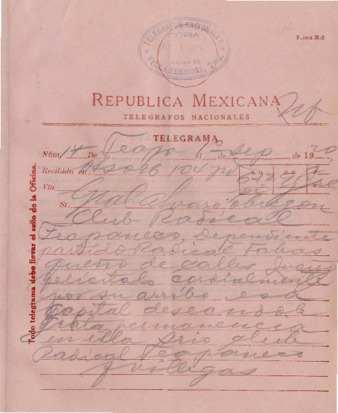 TELEGRAFOS NACIONALES
VILLAHERMOSA, TAB.
Forma M-2
REPUBLICA MEXICANA
TELEGRAFOS NACIONALES
TELEGRAMA
Núm. 14 De Teapa 1o sep de 1920
Recibido en
Vía
Sr. Gral Alvaro Obregon
Club Radical
Teapaneco, Dependiente
partido Radical Tabas
queño de calles Juarez
felicitalo cordialmente
por su arribo esa
Capital deseandole
grata permanencia
en ella Srio Club
Radical Teapaneco
J Villegas
Todo telegrama debe llevar el sello de la Oficina.